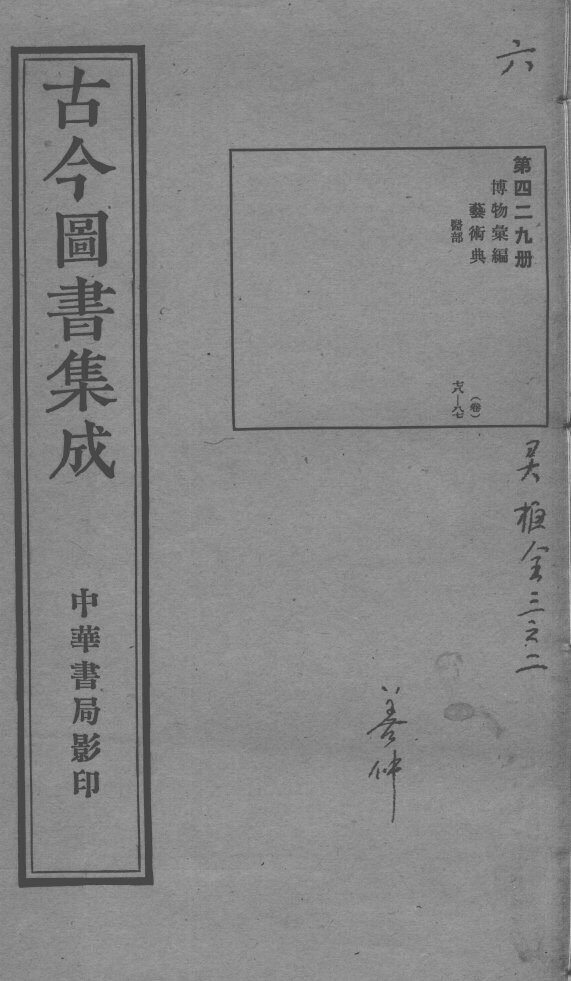 六
第四二九册
博物彙編
藝術典
醫部
（卷）
灵枢全三之二
善仲
古今圖書集成
中華書局影印